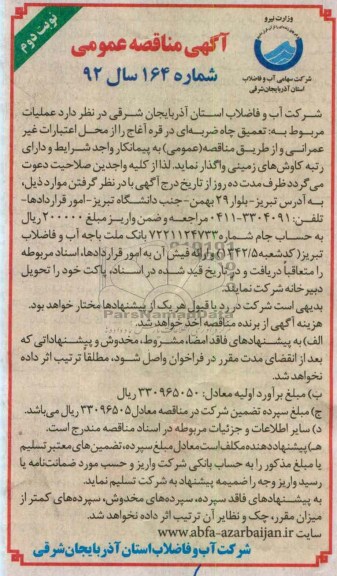 نوبت دوم
وزارت نیرو
شرکت سهامی آب و فاضلاب
استان آذربایجان شرقی
آگهی مناقصه عمومی
شماره ۱۶۴ سال ۹۲
شرکت آب و فاضلاب استان آذربایجان شرقی در نظر دارد عملیات
مربوط به: تعمیق چاه ضربه‌ای در قره آغاج را از محل اعتبارات غیر
عمرانی و از طریق مناقصه(عمومی) به پیمانکار واجد شرایط و دارای
رتبه کاوش‌های زمینی واگذار نماید. لذا از کلیه واجدین صلاحیت دعوت
می‌گردد ظرف مدت ده روز از تاریخ درج آگهی با در نظر گرفتن موارد ذیل،
به آدرس تبریز- بلوار ۲۹ بهمن- جنب دانشگاه تبریز- امور قراردادها-
تلفن: ۳۳۰۴۰۹۱-۰۴۱۱ مراجعه و ضمن واریز مبلغ ۲۰۰۰۰۰ ریال
به حساب جام شماره ۷۲۲۱۱۲۴۷۳۳ بانک ملت باجه آب و فاضلاب
تبریز( کدشعبه ۱۳۴۲/۵) و ارائه فیش آن به امور قراردادها، اسناد مربوطه
را متعاقباً دریافت و در تاریخ قید شده در اسناد، پاکت خود را تحویل
دبیرخانه شرکت نمایند.
بدیهی است شرکت در رد یا قبول هر یک از پیشنهادها مختار خواهد بود.
هزینه آگهی از برنده مناقصه اخذ خواهد شد.
الف) به پیشنهادهای فاقد امضا، مشروط، مخدوش و پیشنهاداتی که
بعد از انقضای مدت مقرر در فراخوان واصل شود، مطلقا ترتیب اثر داده
نخواهد شد.
ب) مبلغ برآورد اولیه معادل: ۳۳۰۹۶۵۰۵۰ ریال
ج) مبلغ سپرده تضمین شرکت در مناقصه معادل ۳۳۰۹۶۵۰۵ ریال می‌باشد.
د) سایر اطلاعات و جزئیات مربوطه در اسناد مناقصه مندرج است.
هـ) پیشنهاددهنده مکلف است معادل مبلغ سپرده، تضمین‌های معتبر تسلیم
یا مبلغ مذکور را به حساب بانکی شرکت واریز و حسب مورد ضمانت‌نامه یا
رسید واریز وجه را ضمیمه پیشنهاد به شرکت تسلیم نماید.
به پیشنهادهای فاقد سپرده، سپرده‌های مخدوش، سپرده‌های کمتر از
میزان مقرر، چک و نظایر آن ترتیب اثر داده نخواهد شد.
سایت www.abfa-azarbaijan.ir
شرکت آب و فاضلاب استان آذربایجان شرقی